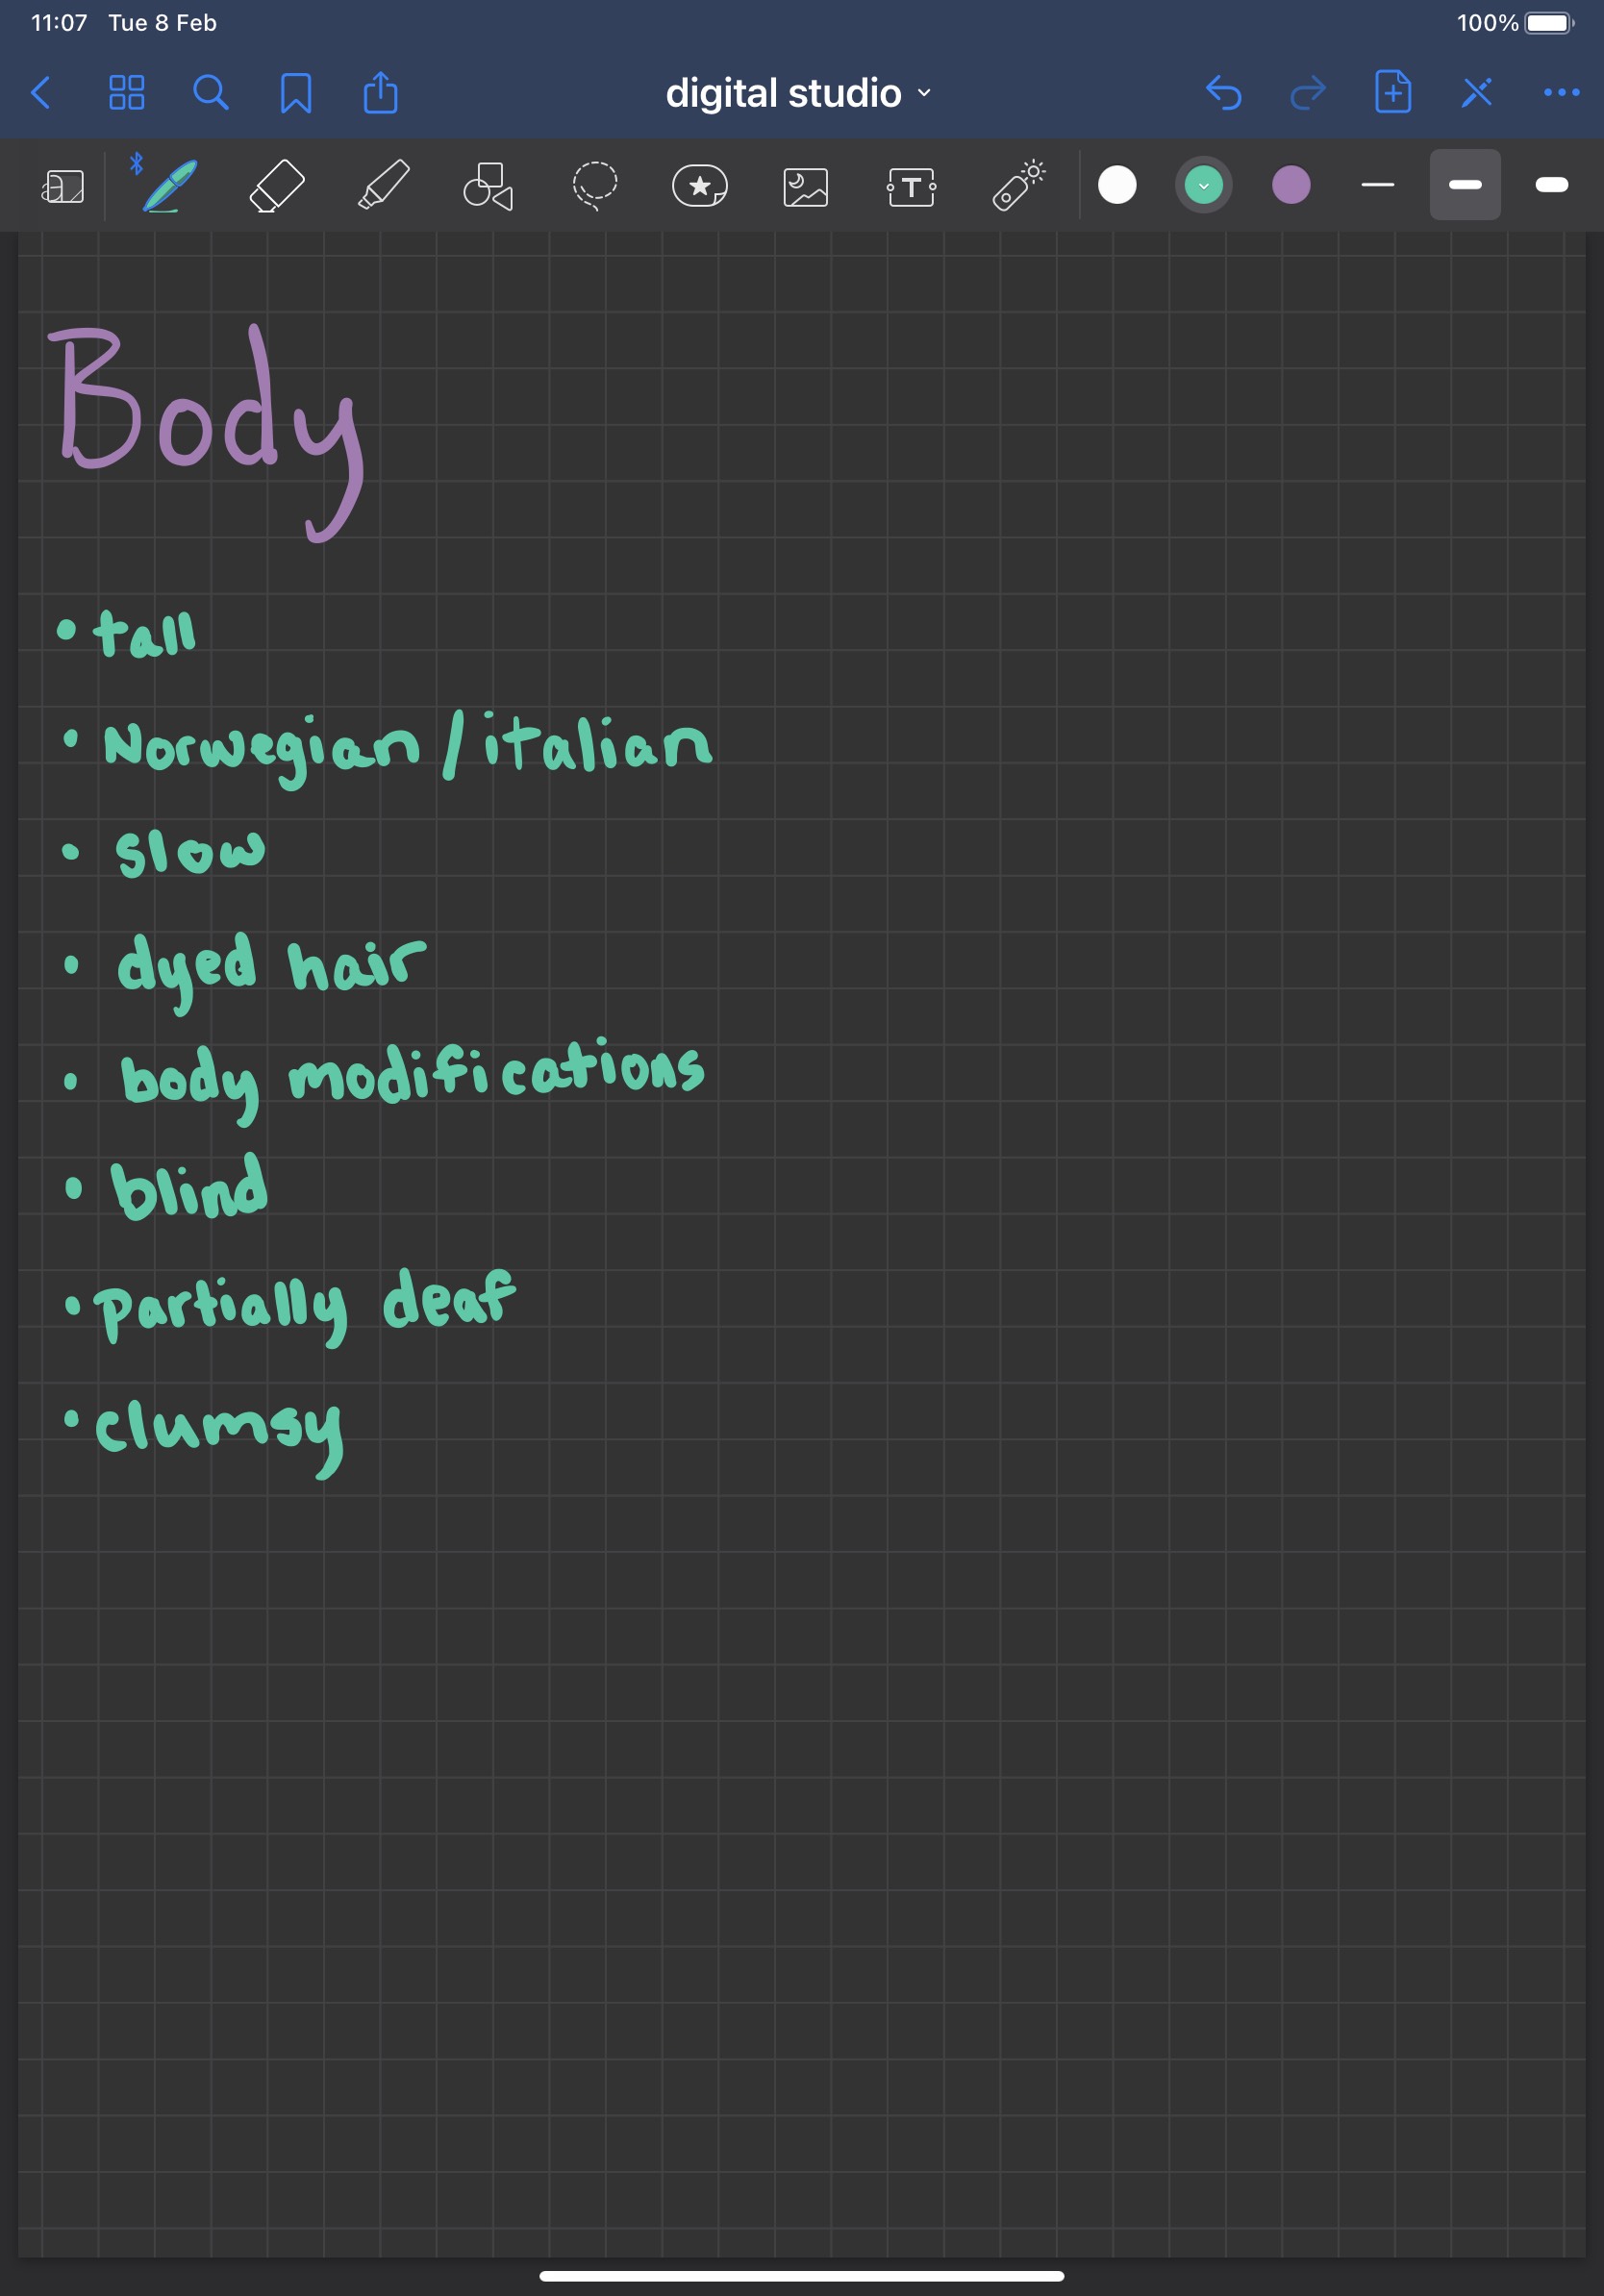 11:07 Tue 8 Feb 100%
digital studio
T
Body
• tall
• Norwegian/italian
• slow
• dyed hair
• body modifications
• blind
• partially deaf
• clumsy